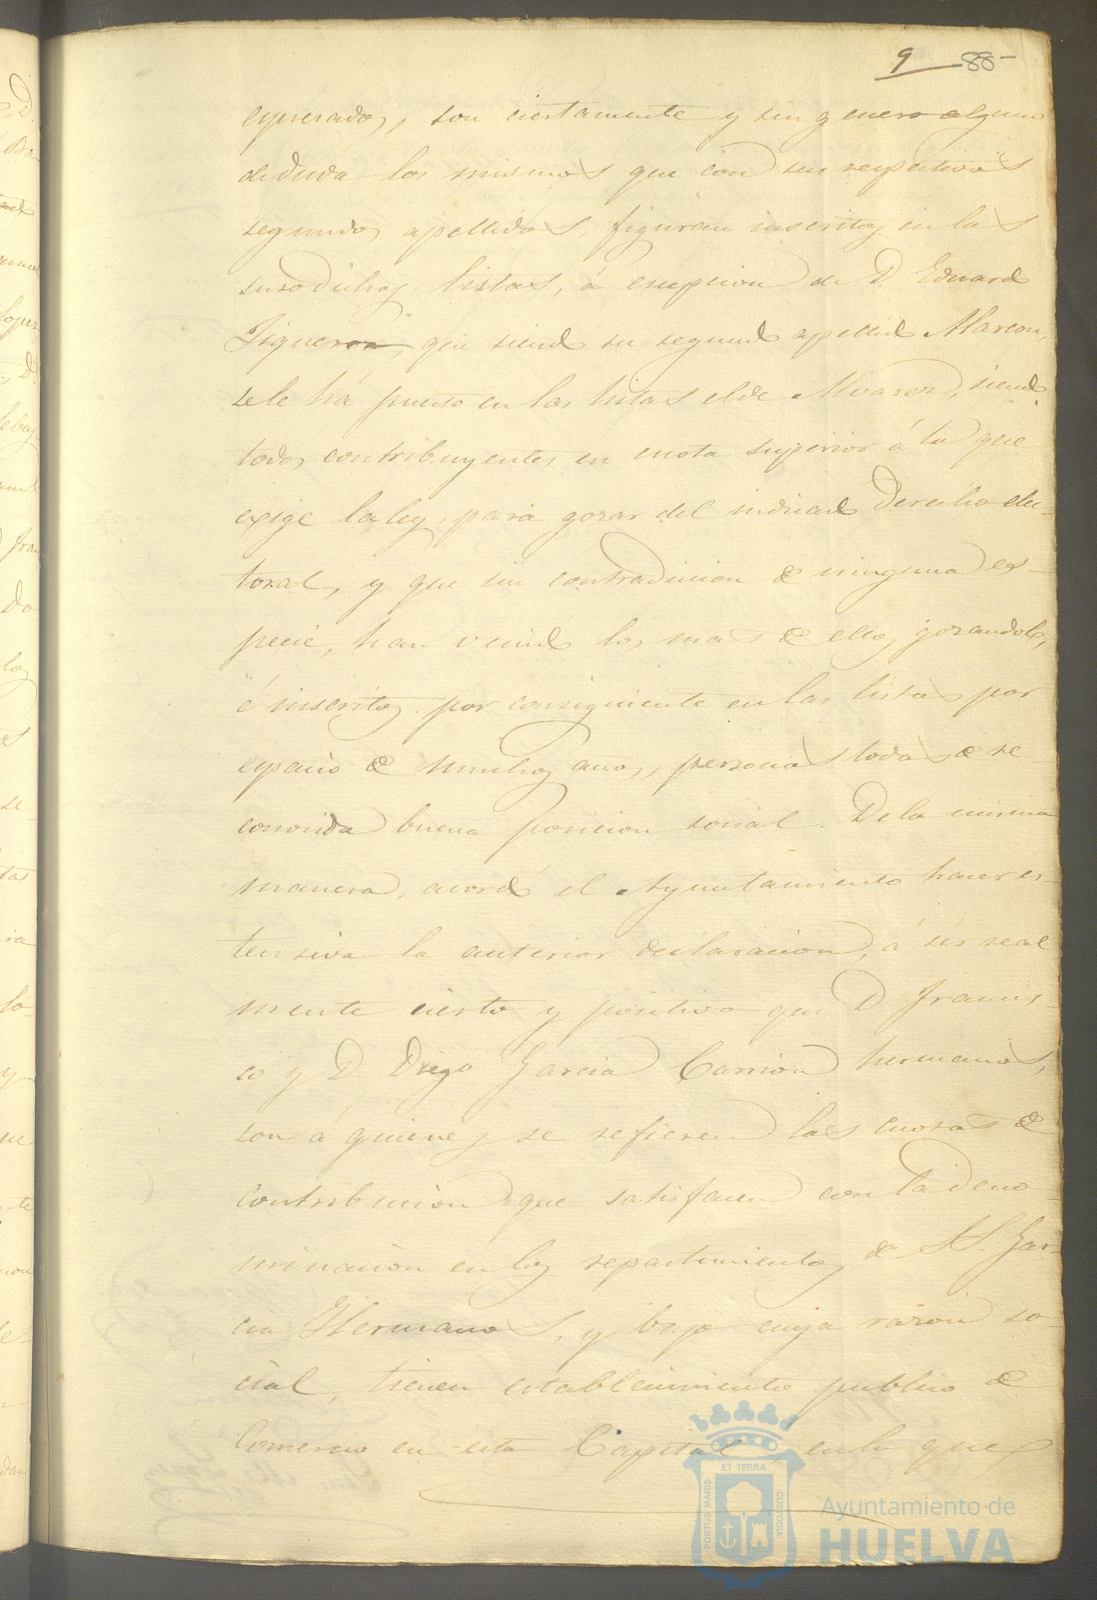 9 88
espresados, son ciertamente y sin genero alguno
de duda los mismos que con sus respectivos
segundos apellidos, figuran inscritos en las
susodichas listas, á escepcion de D. Eduardo
Figueron, que siendo su segundo apellido Alarcon,
se le há puesto en las listas el de Alvarez, siendo
todos contribuyentes en cuota superior á la que
exige la ley para gozar del indicado derecho elec-
toral, y que sin contradiccion de ninguna es-
pecie, han venido los mas de ellos, gozandole,
é inscritos por consiguiente en las listas por
espacio de muchos años, personas todas de re-
conocida buena posicion social. De la misma
manera, acordó el Ayuntamiento hacer es-
tensiva la anterior declaracion, á sér real
mente cierto y positivo que D. Francis-
co y D. Diego Garcia Carrion hermanos,
son á quienes se refieren las cuotas de
contribucion que satisfacen con la deno-
minacion en los repartimientos de S.S. Gar-
cia Hermanos, y bajo cuya razon so-
cial, tienen establecimiento publico de
Comercio en esta Capital, en la que
PORTUS MARIS ET TERRÆ CUSTODIA
Ayuntamiento de
HUELVA